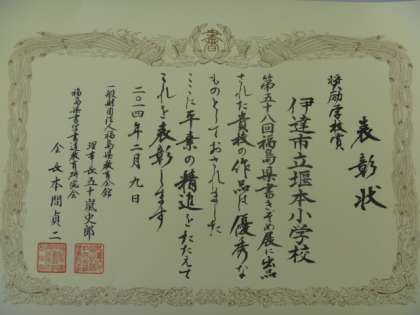 表彰状
奨励学校賞
伊達市立堰本小学校
第五十八回福島県書きぞめ展に出品
された貴校の作品は優秀な
ものとしておされました
ここに平素の精進をたたえて
これを表彰します
二〇一四年二月九日
一般財団法人福島県教育会館
理事長五十嵐史郎
福島県書写書道教育研究会
会長本間貞二